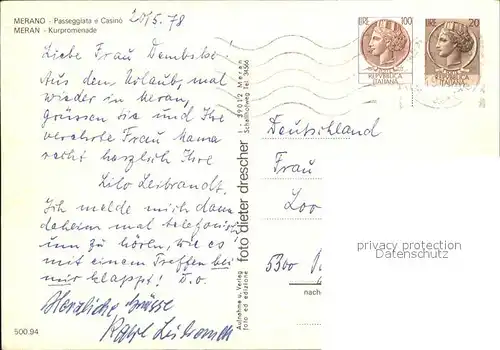 MERANO - Passeggiata e Casinò
MERAN - Kurpromenade
20/5.78
Liebe Frau Dembski!
Aus dem Urlaub, mal
wieder in Meran,
grüssen Sie und Ihre
verehrte Frau Mama
recht herzlich Ihre
Lilo Leibrandt.
Ich melde mich dann
daheim mal telefonisch
um zu hören, wie es
mit einem Treffen bei
mir klappt! D.o.
Herzliche Grüsse
Leibrandt
500.94
Aufnahme u. Verlag
foto ed edizione
foto dieter drescher
I - 39012 Meran
Schallhofweg Tel. 34566
LIRE 100
REPUBBLICA
ITALIANA
LIRE 20
REPUBBLICA
ITALIANA
Deutschland
Frau
Loo
5300
nach
privacy protection
Datenschutz